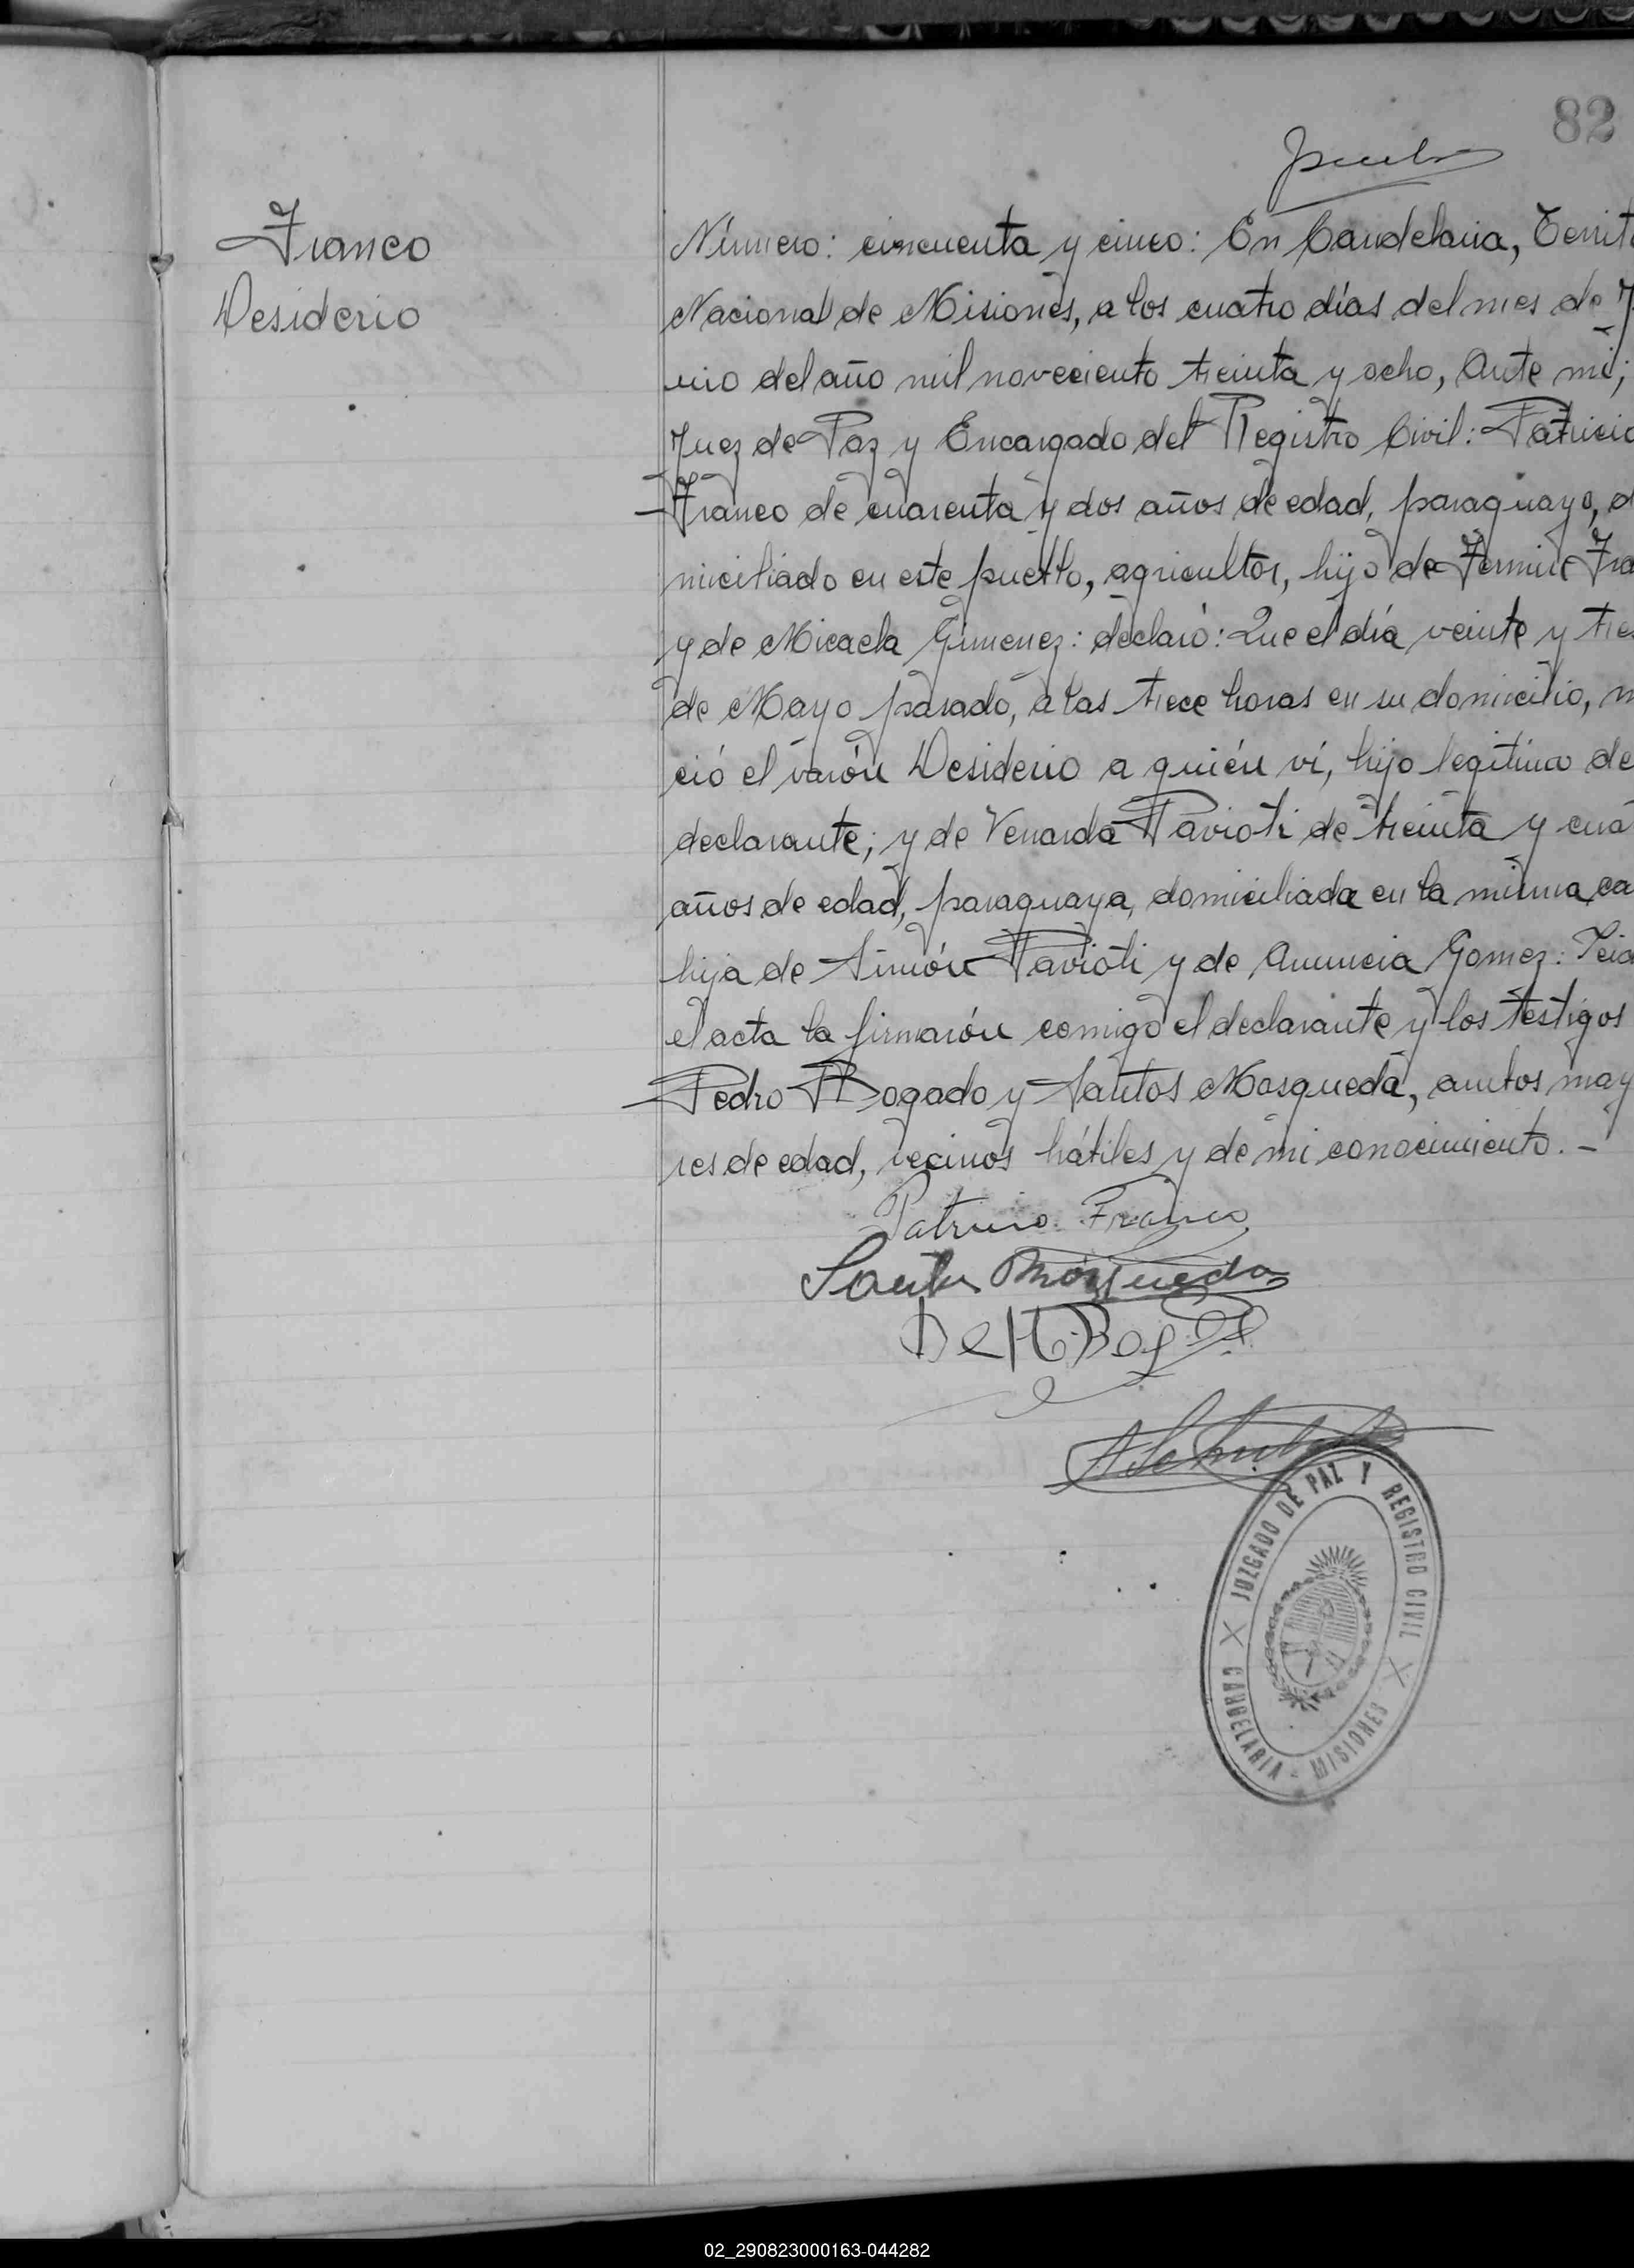 82
Franco
Desiderio
Número: cincuenta y cinco: En Candelaria, Territ
Nacional de Misiones, a los cuatro días del mes de J
nio del año mil noveciento treinta y ocho, Ante mí;
Juez de Paz y Encargado del Registro Civil: Patricio
Franco de cuarenta y dos años de edad, paraguayo, d
miciliado en este pueblo, agricultor, hijo de Fermin Fra
y de Micaela Gimenez: declaró: Que el día veinte y tres
de Mayo pasado, a las trece horas en su domicilio, n
ció el varón Desiderio a quién ví, hijo legítimo de
declarante; y de Venarda Ravioti de treinta y cua
años de edad, paraguaya, domiciliada en la misma ca
hija de Simón Ravioti y de Anuncia Gomez: Leid
el acta la firmarón comigo el declarante y los testigos
Pedro Bogado y Santos Mosqueda, ambos may
res de edad, vecinos hábiles y de mi conocimiento. -
Patricio Franco
Santos Mosqueda
JUZGADO DE PAZ Y REGISTRO CIVIL
CANDELARIA - MISIONES
02_290823000163-044282